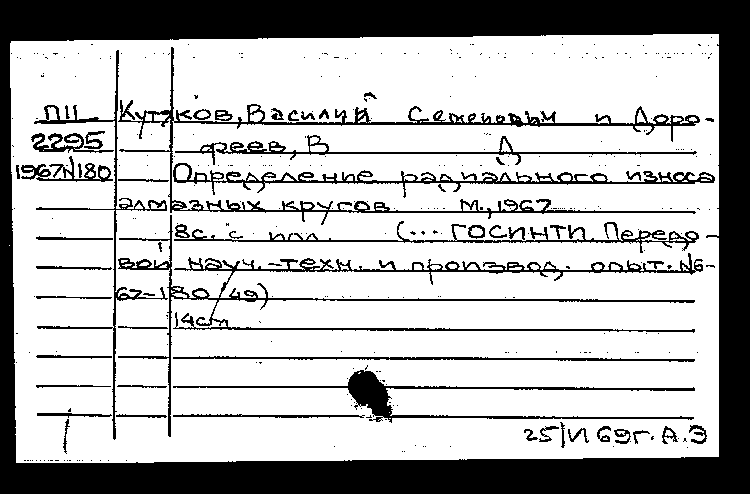 ПII Кутяков, Василий Семенович и Доро-
2295 феев, В Д
1967N180 Определение радиального износа
алмазных кругов М., 1967
8с. с илл. (... ГОСИНТИ. Передо-
вой науч.-техн. и производ. опыт. №6-
67-180/49)
14см
25/VI 69г. А.Э